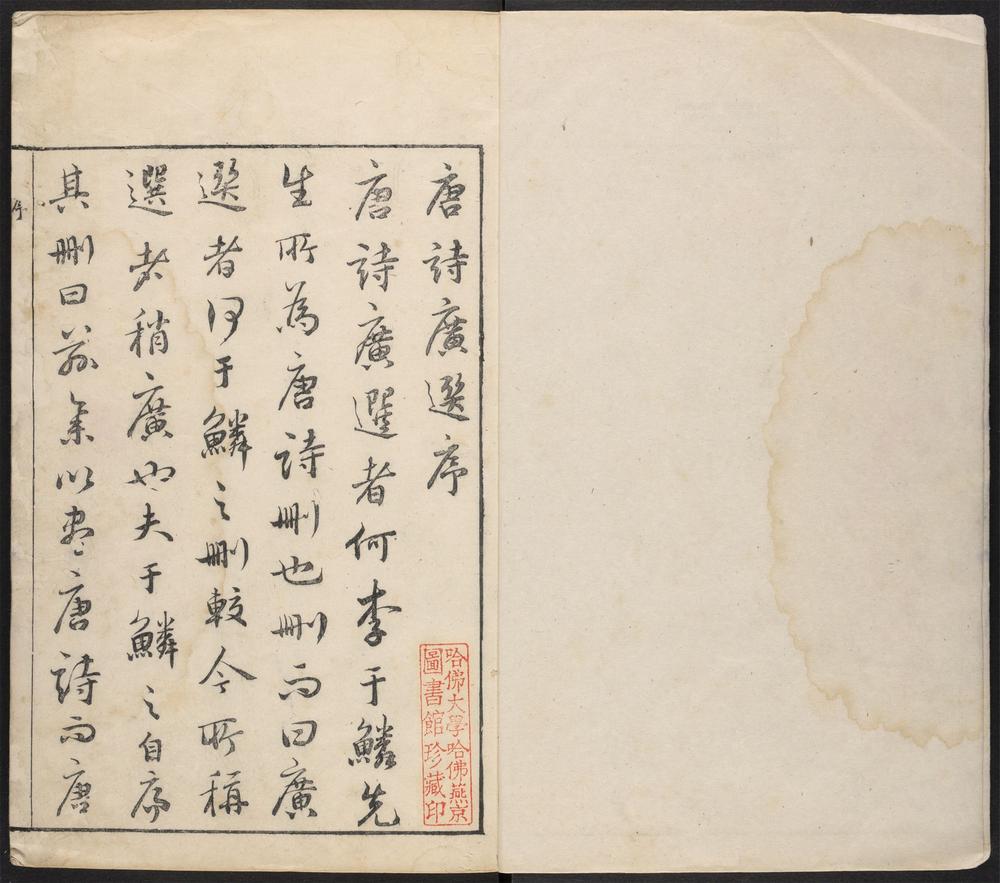 唐詩廣選序
唐詩廣選者何李于鱗先
生所為唐詩刪也刪而曰廣
選者何于鱗之刪較今所稱
選者稍廣也夫于鱗之自序
其刪曰茲集以盡唐詩而唐
序
哈佛大學哈佛燕京
圖書館珍藏印